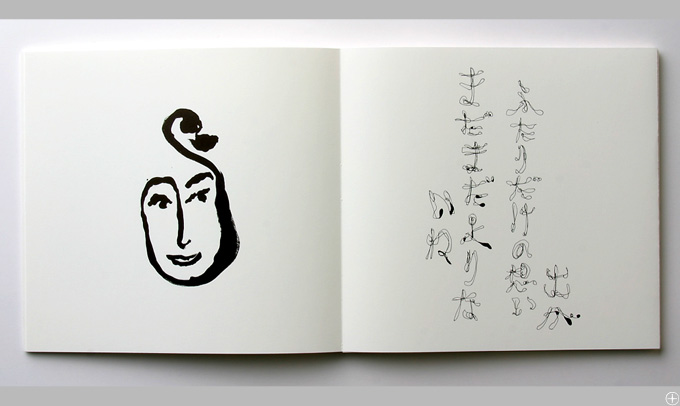 ふたりだけの想い
出が
まだまだよりな
いね